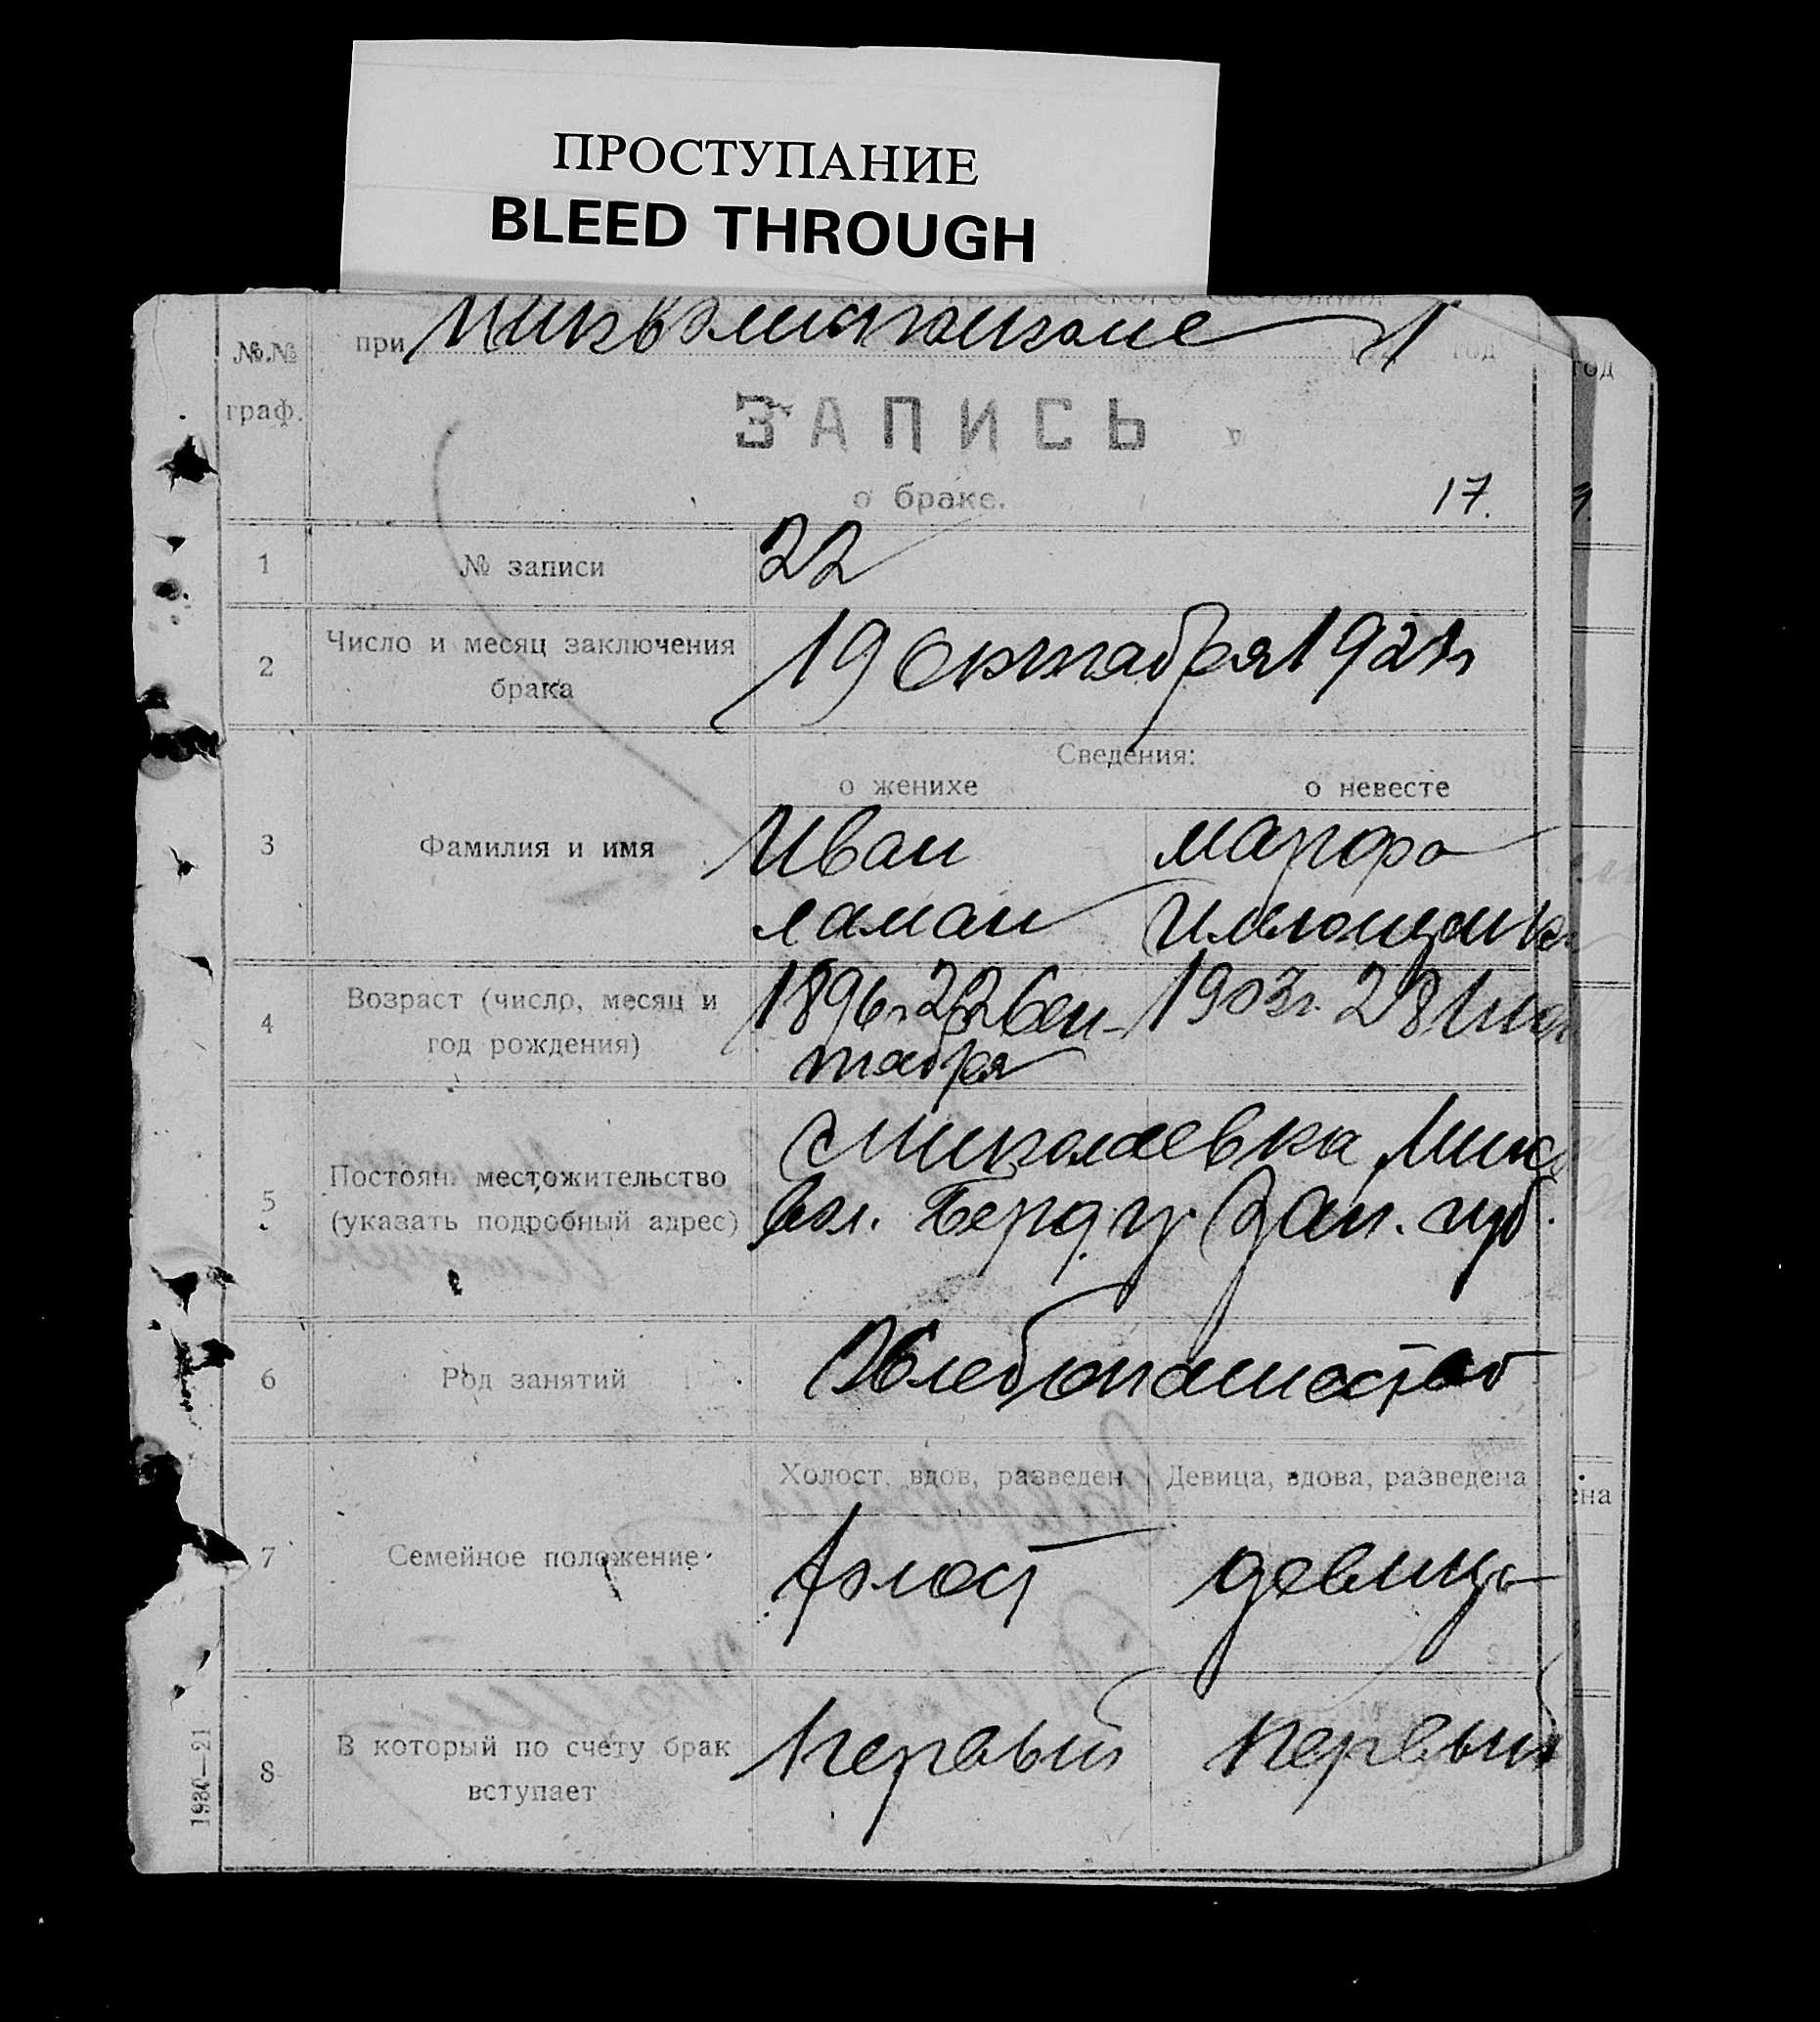 ПРОСТУПАНИЕ
BLEED THROUGH
№.№ граф.
при
год
ЗАПИСЬ
о браке.
17.
1 № записи 22
2 Число и месяц заключения брака
19 Октября 1921 г
Сведения:
о женихе о невесте
3 Фамилия и имя
Иван Марфа
Ламан
4 Возраст (число, месяц и год рождения)
1896 г. 22 Сен- 1903 г. 28
тября
5 Постоян. местожительство
(указать подробный адрес)
с Николаевка Ник
вол. Берд. у. Зап. губ.
6 Род занятий
Хлебопашество
Холост, вдов, разведен Девица, вдова, разведена
7 Семейное положение
холост девица
8 В который по счету брак
вступает
первый первый
1930—21
год
ена